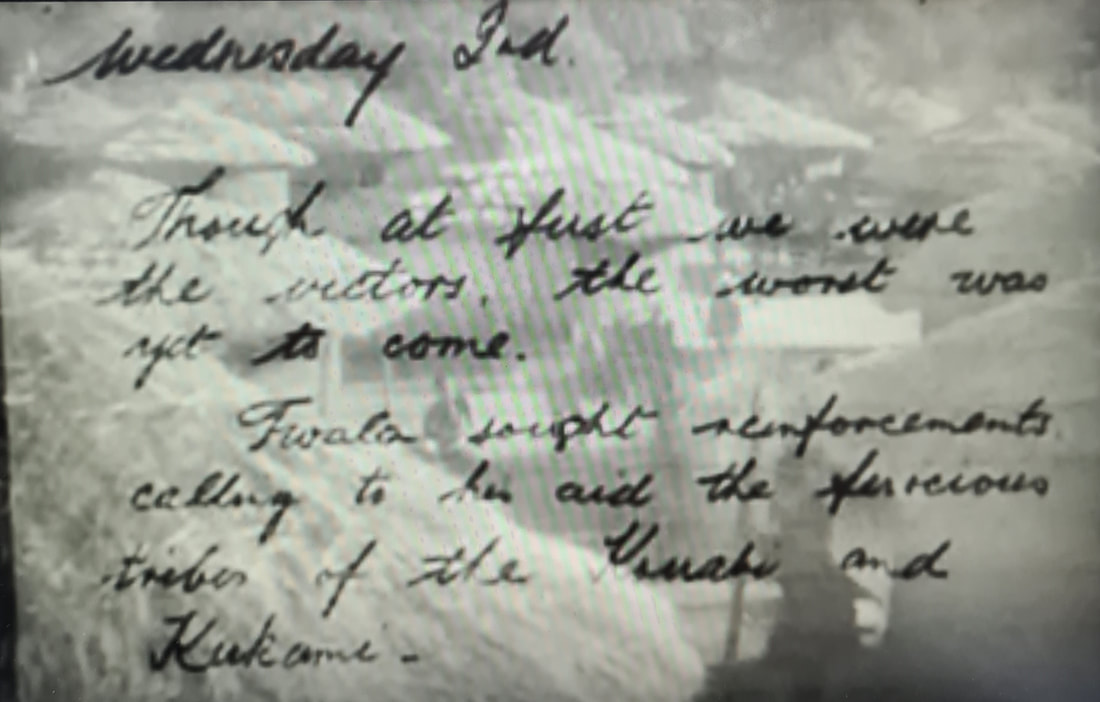 Wednesday 3rd.
Though at first we were
the victors, the worst was
yet to come.
Twala sought reinforcements
calling to his aid the ferocious
tribes of the and
Kukami -